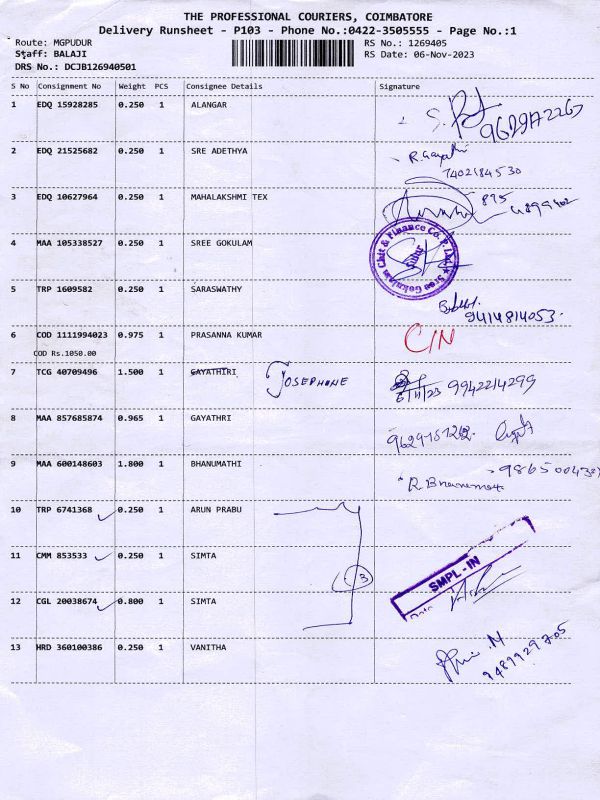 THE PROFESSIONAL COURIERS, COIMBATORE
Delivery Runsheet - P103 - Phone No.:0422-3505555 - Page No.:1
Route: MGPUDUR RS No.: 1269405
Staff: BALAJI RS Date: 06-Nov-2023
DRS No.: DCJB126940501
S No Consignment No Weight PCS Consignee Details Signature
1 EDQ 15928285 0.250 1 ALANGAR
2 EDQ 21525682 0.250 1 SRE ADETHYA R.Gayathri
7402184530
3 EDQ 10627964 0.250 1 MAHALAKSHMI TEX 895
4 MAA 105338527 0.250 1 SREE GOKULAM Sree Gokulam Chit & Finance Co. P. Ltd.
5 TRP 1609582 0.250 1 SARASWATHY
9414814053.
6 COD 1111994023 0.975 1 PRASANNA KUMAR C/N
COD Rs.1050.00
7 TCG 40709496 1.500 1 GAYATHIRI JOSEPHONE 6/11/23 9942214299
8 MAA 857685874 0.965 1 GAYATHRI
9 MAA 600148603 1.800 1 BHANUMATHI
R Bhanumathi
10 TRP 6741368 0.250 1 ARUN PRABU
11 CMM 853533 0.250 1 SIMTA SMPL - IN
3
12 CGL 20038674 0.800 1 SIMTA Date
13 HRD 360100386 0.250 1 VANITHA
9489929705